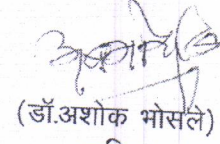 (डॉ.अशोक भोसले)